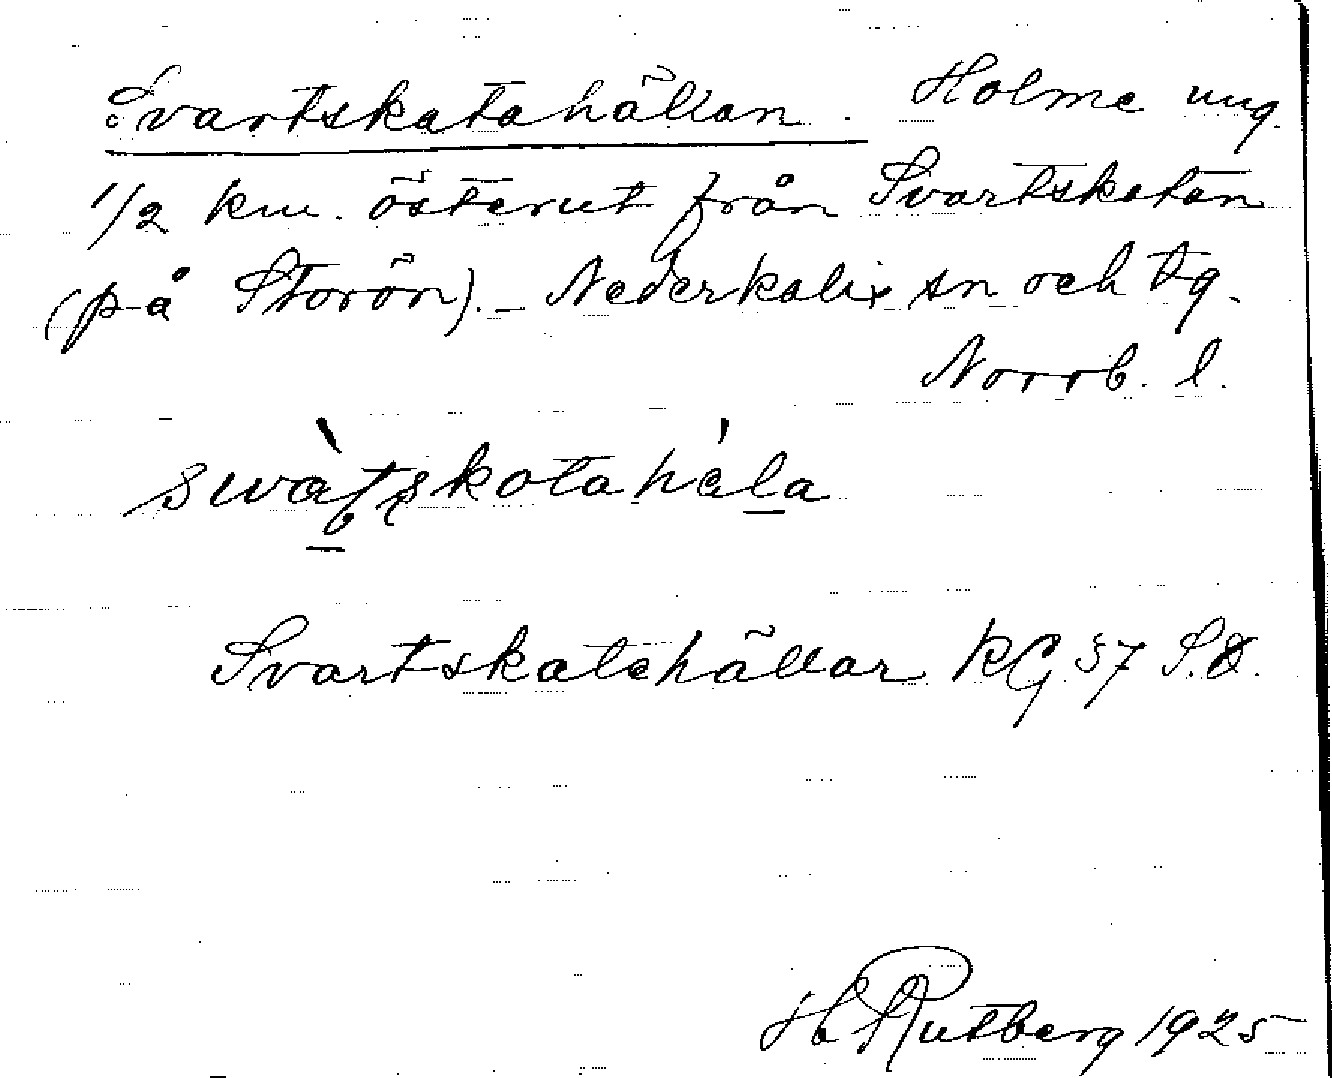 Svartskatahällan. Holme ung.
1/2 km. österut från Svartskatan
(på Storön). - Nederkalix sn och tg.
Norrb. l.
swàtskotahála
Svartskatehällar KG. 57 S.O.
H Rutberg 1925